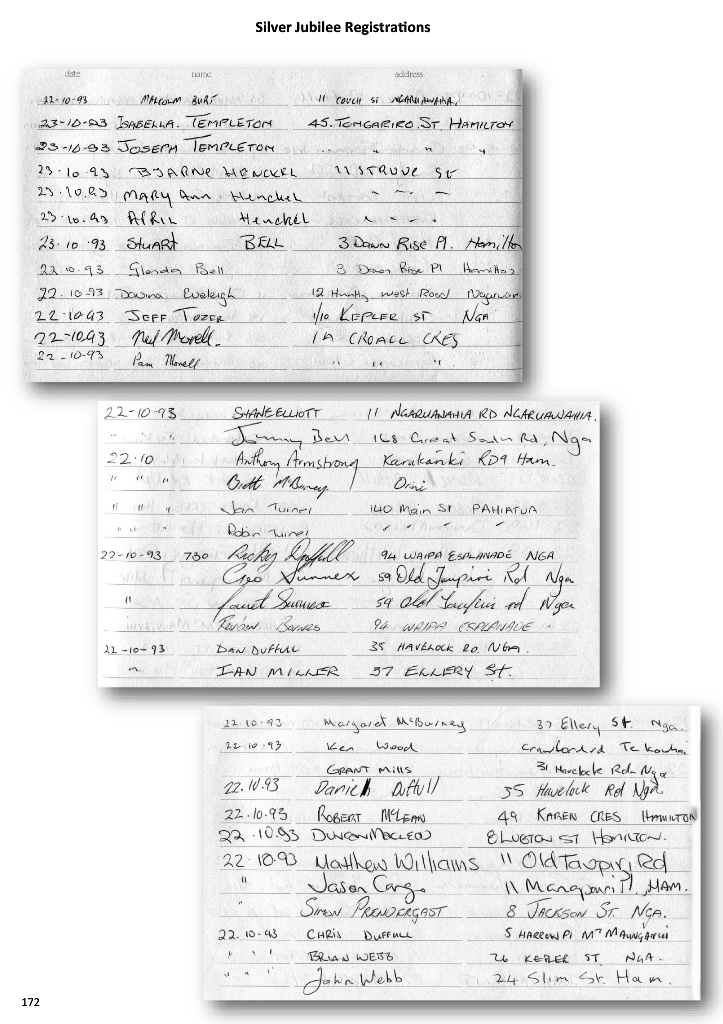 Silver Jubilee Registrations
date name address
22-10-93 MALCOLM BURT 11 COUCH ST NGARUAWAHIA
23-10-93 ISABELLA. TEMPLETON 45. TONGARIRO. ST HAMILTON
23-10-93 JOSEPH TEMPLETON " " "
23.10.93 BJARNE HENCKEL 11 STRUVE ST
23.10.93 MARY Ann Henckel " " "
23.10.93 APRIL Henckel " " "
23.10.93 STUART BELL 3 Dawn Rise Pl. Hamilton
22.10.93 Glenda Bell 3 Dawn Rise Pl Hamilton
22.10.93 Davina Eveleigh 12 Huntly West Road
22.10.93 JEFF TOZER 1/10 KEPLER ST NGA
22-10.93 Neil Morell. 1A CROALL CRES
22-10-93 Pam Morell " " "
22-10-93 SHANE ELLIOTT 11 NGARUAWAHIA RD NGARUAWAHIA.
" " " Jimmy Bell 168 Great South Rd, Nga
22.10 Anthony Armstrong Karakariki RD9 Ham.
" " " Brett McBurney Orini
" " " Jan Turner 140 Main St PAHIATUA
" " " Robin Turner " " "
22-10-93 730 Ricky Duffull 94 WAIPA ESPLANADE NGA
Geo Sunnex 59 Old Taupiri Rd Nga
" Janet Sunnex 59 Old Taupiri rd Nga
Reuben Barnes 94 WAIPA ESPLANADE "
22-10-93 DAN DUFFULL 35 HAVELOCK RD. NGA.
" IAN MILLER 37 ELLERY ST.
22.10.93 Margaret McBurney 37 Ellery St. Nga.
22.10.93 Ken Wood Crawford rd Te Kowhai
GRANT Mills 31 Havelock Rd. Nga
22.10.93 Daniell Duffull 35 Havelock Rd Nga
22.10.93 ROBERT McLEAN 49 KAREN CRES HAMILTON
22.10.93 DUNCAN MACLEOD ST HAMILTON.
22.10.93 Matthew Williams 11 Old Taupiri Rd
" Jason 11 Manapouri Pl, HAM.
" SIMON PRENDERGAST 8 JACKSON ST. NGA.
22.10-93 CHRIS DUFFULL 5 HARROW Pl MT MAUNGANUI
" " " BRIAN WEBB 26 KEPLER ST. NGA.
" " " John Webb 24 Slim St. Ham.
172